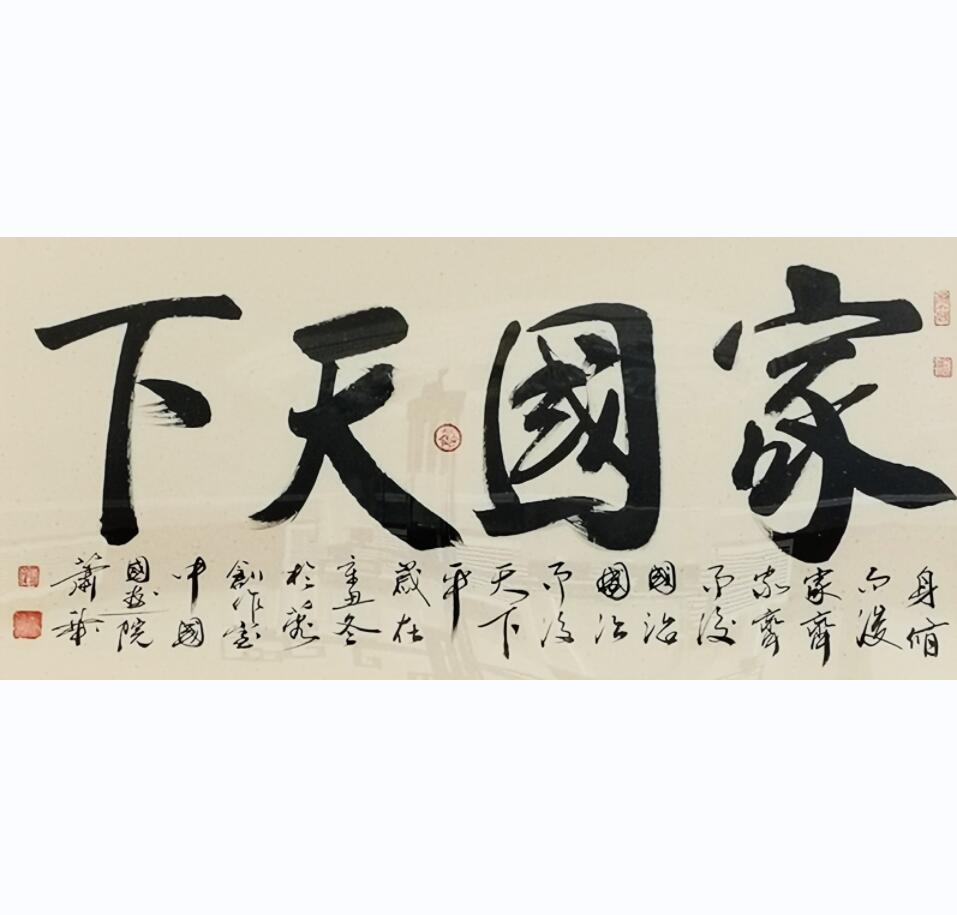 家國天下
身脩
而後
家齊
家齊
而後
國治
國治
而後
天下
平
歲在
辛丑冬
於
創作室
中國
國畫院
蕭